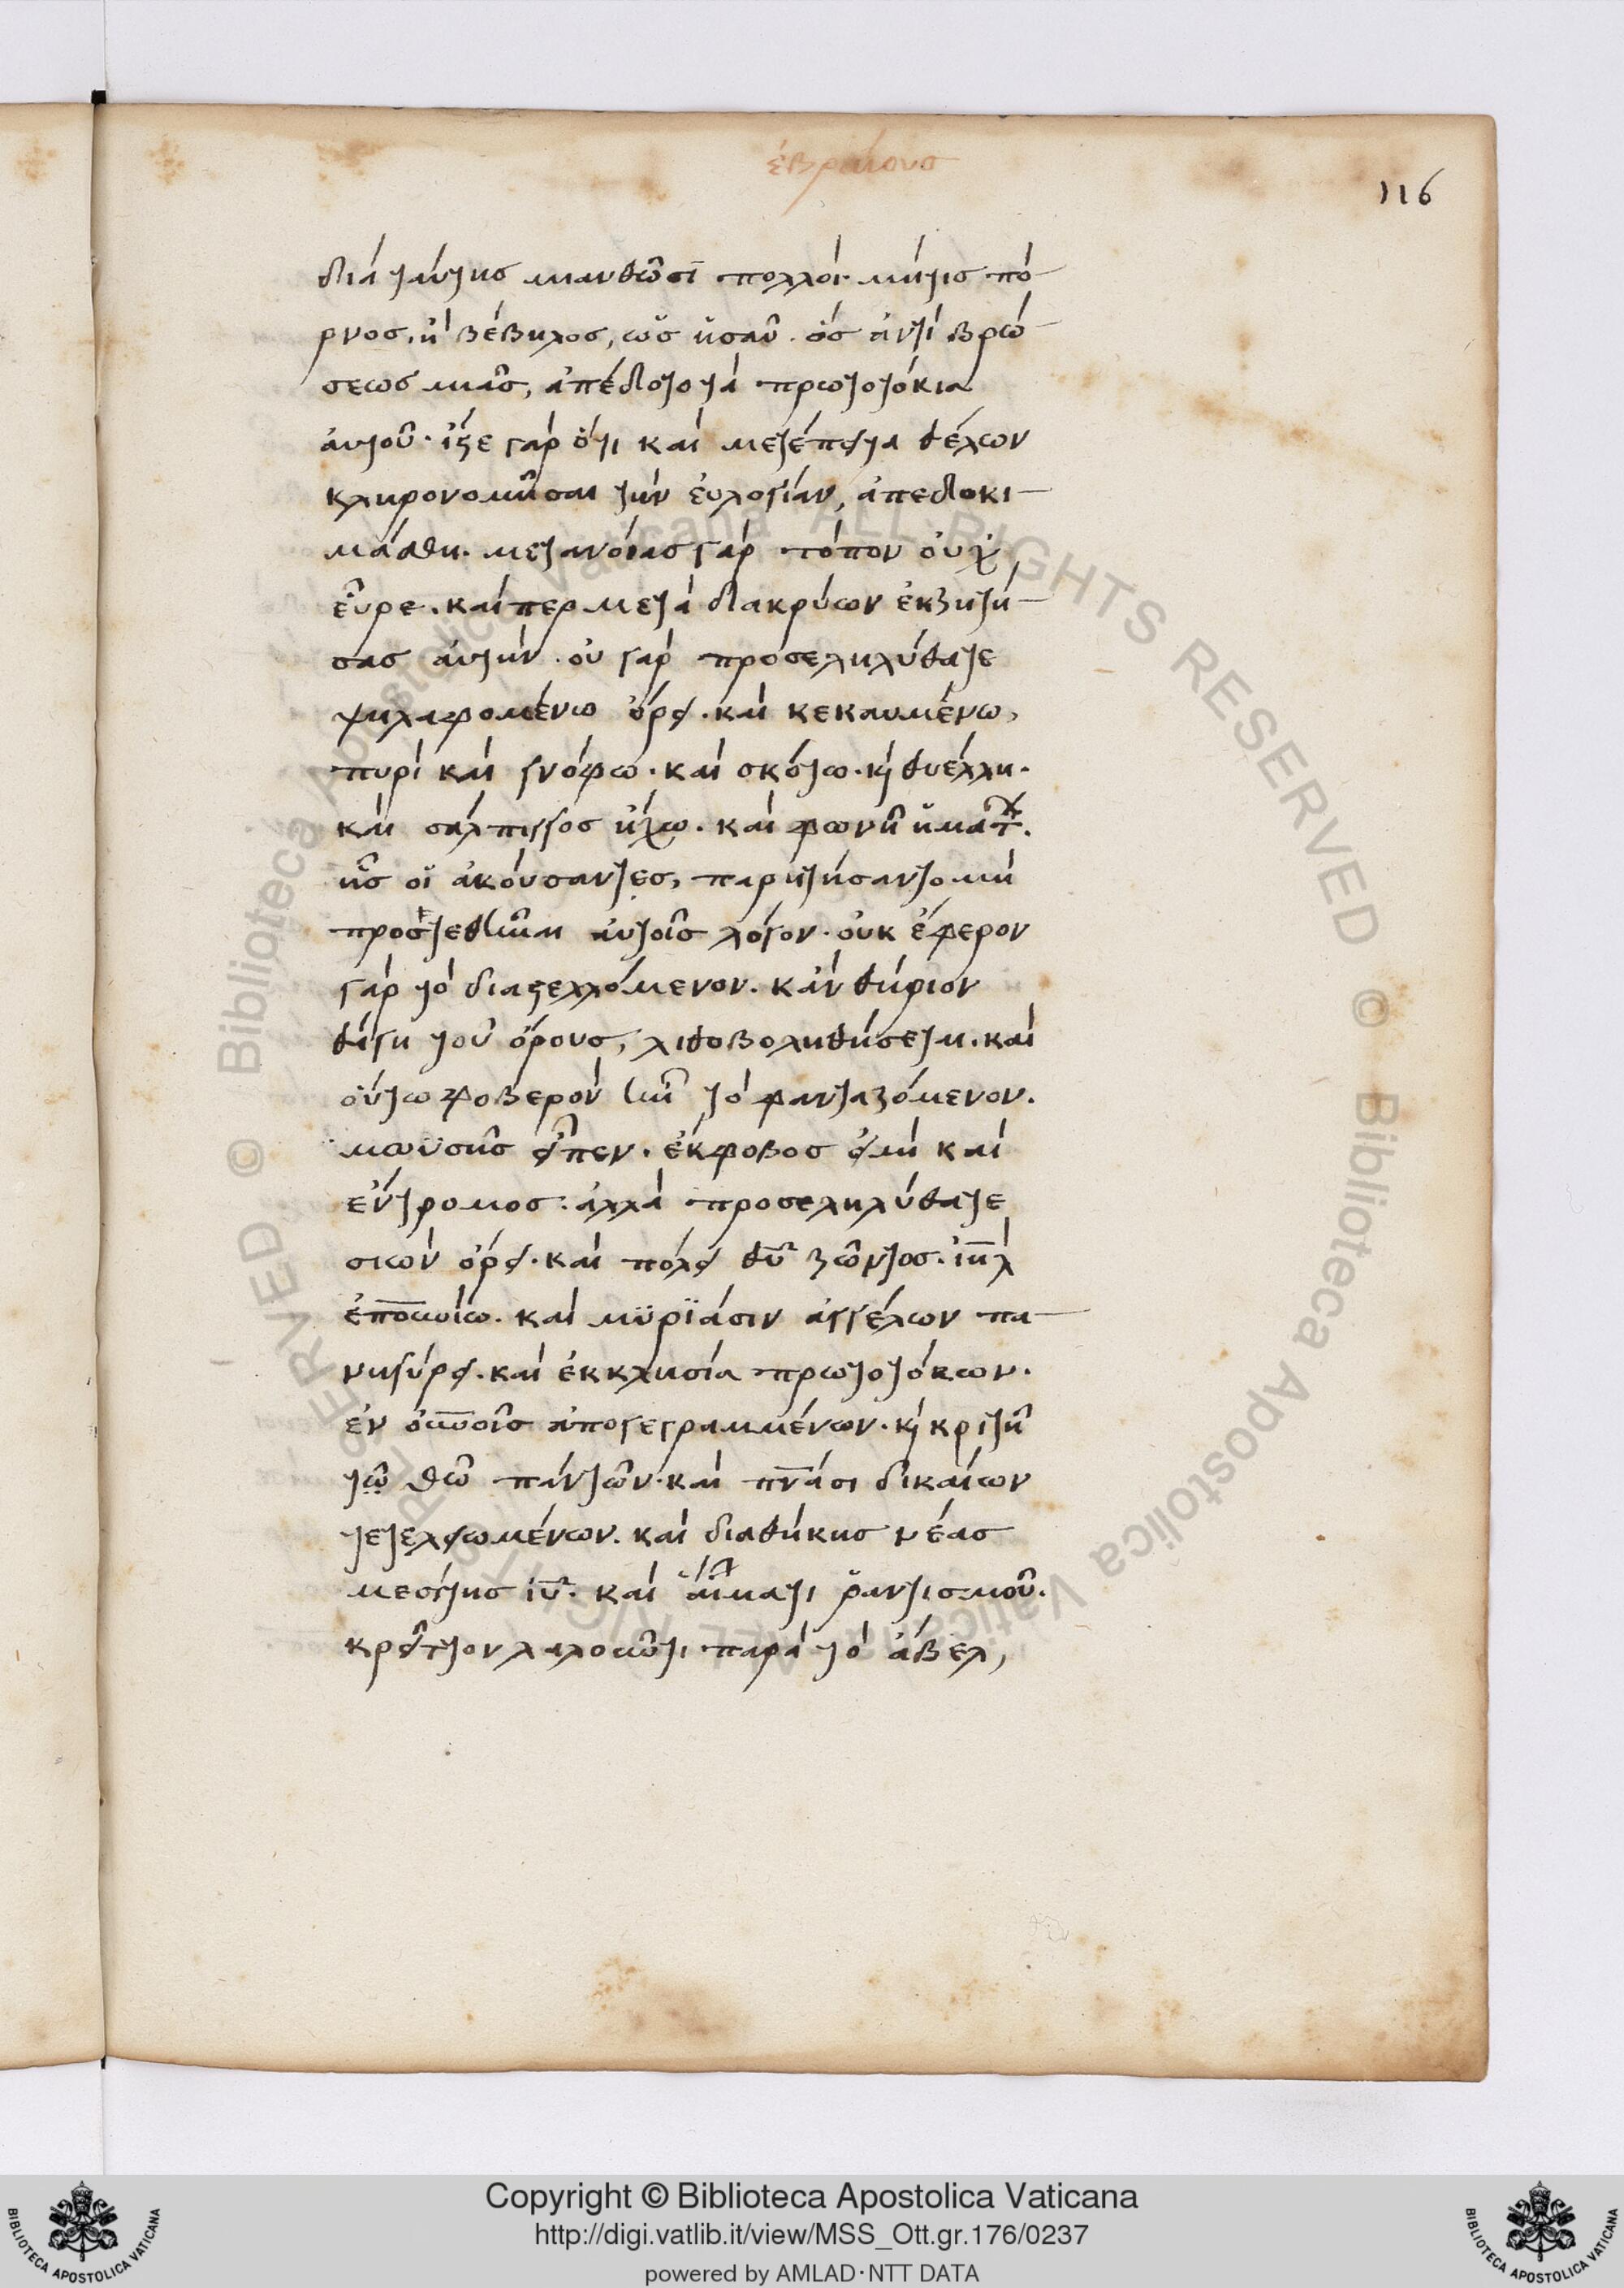 ἑβραίους
116
διὰ ταύτης μιανθῶσι πολλοί· μήτις πό-
ρνος, ἢ βέβηλος, ὡς ἠσαῦ. ὃς ἀντὶ βρώ-
σεως μιᾶς, ἀπέδοτο τὰ πρωτοτόκια
αὐτοῦ· ἴστε γὰρ ὅτι καὶ μετέπειτα θέλων
κληρονομῆσαι τὴν εὐλογίαν, ἀπεδοκι-
μάσθη. μετανοίας γὰρ τόπον οὐχ
εὗρε. καίπερ μετὰ δακρύων ἐκζητή-
σας αὐτήν. οὐ γὰρ προσεληλύθατε
ψηλαφομένω ὄρει. καὶ κεκαυμένω,
πυρὶ καὶ γνόφω. καὶ σκότω. κὶ θυέλλη.
καὶ σάλπιγγος ἤχω. καὶ φωνῆ ῥημάτ.
ἧς οἱ ἀκούσαντες, παρητήσαντο μὴ
προστεθῆναι αὐτοῖς λόγον. οὐκ ἔφερον
γὰρ τὸ διαστελλόμενον. κἂν θηρίον
θίγη τοῦ ὄρους, λιθοβοληθήσεται. καὶ
οὕτω φοβερὸν ἦν τὸ φανταζόμενον.
μωϋσῆς εἶπεν. ἔκφοβος εἰμὶ καὶ
ἔντρομος. ἀλλὰ προσεληλύθατε
σιὼν ὄρει. καὶ πόλει θυ ζῶντος. ιηλ
ἐπουνίω. καὶ μϋρϊάσιν ἀγγέλων πα-
νηγύρει. καὶ ἐκκλησία πρωτοτόκων.
ἐν οὐνοῖς ἀπογεγραμμένων. κὶ κριτῆ
τῶ θῶ πάντων. καὶ πνάσι δικαίων
τετελειωμένων. καὶ διαθήκης νέας
μεσίτης ιυ. καὶ αἵματι ῥαντισμοῦ.
κρεῖττον λαλοῦντι παρὰ τὸ ἄβελ,
Copyright © Biblioteca Apostolica Vaticana
http://digi.vatlib.it/view/MSS_Ott.gr.176/0237
powered by AMLAD·NTT DATA